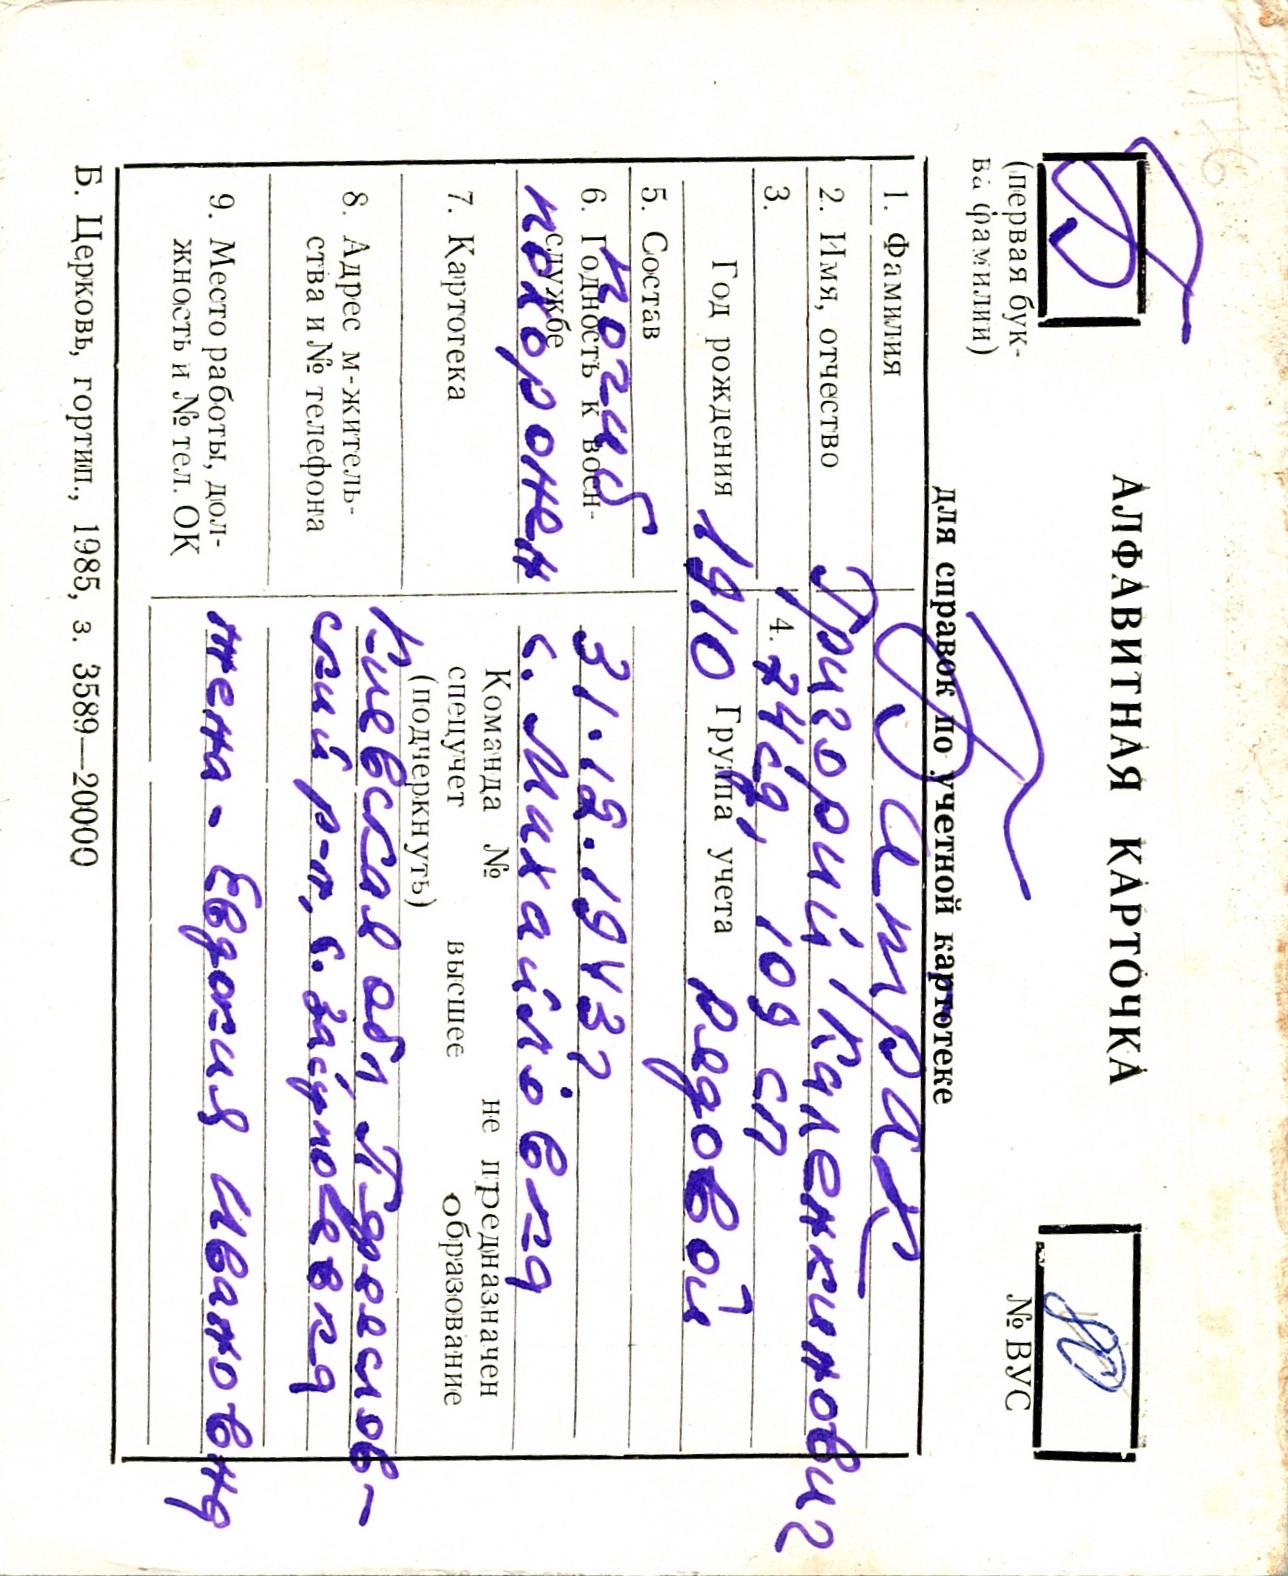 АЛФАВИТНАЯ КАРТОЧКА
Б
80
(первая бук-
ва фамилии)
№ ВУС
для справок по учетной картотеке
1. Фамилия Битрак
2. Имя, отчество Григорий Каленкинович
3. 4. 74сд, 109 сп
Год рождения 1910 Группа учета рядовой
5. Состав
погиб 31.12.1943г
6. Годность к воен-
службе
похоронен с. Михайловка
7. Картотека
Команда № не предназначен
спецучет высшее образование
(подчеркнуть)
8. Адрес м-житель-
ства и № телефона
Киевская обл
ский р-н, с.
9. Место работы, дол-
жность и № тел. ОК
жена - Евдокия Ивановна
Б. Церковь, гортип., 1985, з. 3589—20000